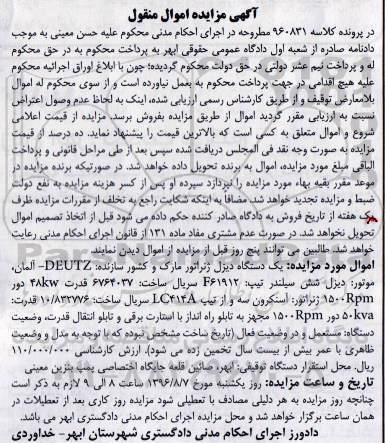 آگهی مزایده اموال منقول
در پرونده کلاسه ۹۶۰۸۳۱ مطروحه در اجرای احکام مدنی محکوم علیه حسن معینی به موجب
دادنامه صادره از شعبه اول دادگاه عمومی حقوقی ابهر به پرداخت محکوم به در حق محکوم
له و پرداخت نیم عشر دولتی در حق دولت محکوم گردیده؛ چون با ابلاغ اوراق اجرائیه محکوم
علیه هیچ اقدامی در جهت پرداخت محکوم به بعمل نیاورده است و از سوی محکوم له اموال
بلامعارض توقیف و از طریق کارشناس رسمی ارزیابی شده، اینک به لحاظ عدم وصول اعتراض
نسبت به ارزیابی مقرر گردید اموال از طریق مزایده بفروش برسد. مزایده از قیمت اعلامی
شروع و اموال متعلق به کسی است که بالاترین قیمت را پیشنهاد نماید. ده درصد از قیمت
مزایده به صورت وجه نقد فی المجلس دریافت شده سپس بعد از طی مراحل قانونی و پرداخت
الباقی مبلغ مورد مزایده، اموال به برنده تحویل داده خواهد شد. در صورتیکه برنده مزایده در
موعد مقرر بقیه بهاء مورد مزایده را نپردازد سپرده او پس از کسر هزینه مزایده به نفع دولت
ضبط و مزایده تجدید خواهد شد. مضافا به اینکه شکایت راجع به تخلف از مقررات مزایده ظرف
یک هفته از تاریخ فروش به دادگاه صادر کننده حکم داده می شود قبل از اتخاذ تصمیم اموال
تحویل نخواهد شد. در صورت عدم مشتری مفاد ماده ۱۳۱ از قانون اجرای احکام مدنی رعایت
خواهد شد. طالبین می توانند پنج روز قبل از مزایده از اموال دیدن نمایند.
اموال مورد مزایده: یک دستگاه دیزل ژنراتور مارک و کشور سازنده: DEUTZ- آلمان،
موتور: دیزل شش سیلندر تیپ: F6L912 سریال ساخت: ۶۷۶۴۰۳۷ قدرت ۴۸kw دور
۱۵۰۰Rpm ژنراتور: آسنکرون سه و از تیپ LC414A سریال ساخت: ۱۰/۸۳۲۷۷۶ قدرت:
۵۰kva دور ۱۵۰۰Rpm مجهز به تابلو راه انداز با استارت برقی و تابلو انتقال قدرت، وضعیت
دستگاه: مستعمل و در وضعیت فعال (تاریخ ساخت مشخص نبوده که با توجه به مدل و وضعیت
ظاهری با عمر بیش از بیست سال تخمین زده می شود). ارزش کارشناسی ۱۱۰/۰۰۰/۰۰۰
ریال. محل استقرار دستگاه توقیفی: ابهر، صائین قلعه جایگاه اختصاصی پمپ بنزین معینی
تاریخ و ساعت مزایده: روز یکشنبه مورخ ۱۳۹۶/۸/۷ ساعت ۸ الی ۹ لازم به ذکر است
چنانچه روز مزایده به هر دلیلی مصادف با تعطیلی شود مزایده روز کاری بعد از تعطیلات در
همان ساعت برگزار خواهد شد و محل مزایده اجرای احکام مدنی دادگستری ابهر می باشد.
دادورز اجرای احکام مدنی دادگستری شهرستان ابهر- خداوردی